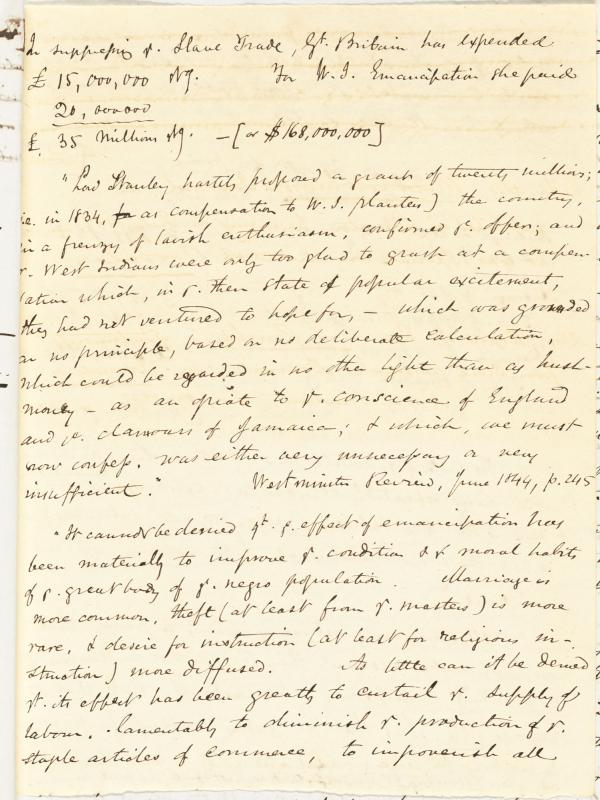 In suppressing ye. Slave Trade, Gt. Britain has expended
£ 15,000,000 stg. For W. I. Emancipation she paid
20,000000
£. 35 Millions stg. – [or $168,000,000]
"Lord Stanley hastily proposed a grant of twenty millions;
i.e. in 1834, as compensation to W. I. planters) the country,
in a frenzy of lavish enthusiasm, confirmed ye. offer; and
ye. West Indians were only too glad to grasp at a compen-
sation which, in ye. then state of popular excitement,
they had not ventured to hope for, – which was grounded
on no principle, based on no deliberate calculation,
which could be regarded in no other light than as hush-
money – as an opiate to ye. conscience of England
and ye. clamours of Jamaica; & which, we must
now confess, was either very unnecessary or very
insufficient." Westminster Review, June 1844, p. 245
"It cannot be denied yt. ye. effect of emancipation has
been materially to improve ye. condition & moral habits
of ye. great body of ye. negro population. Marriage is
more common, theft (at least from ye. masters) is more
rare, & desire for instruction (at least for religious in-
struction) more diffused. As little can it be denied
yt. its effect has been greatly to curtail ye. supply of
labour, lamentably to diminish ye. production of ye.
staple articles of commerce, to impoverish all